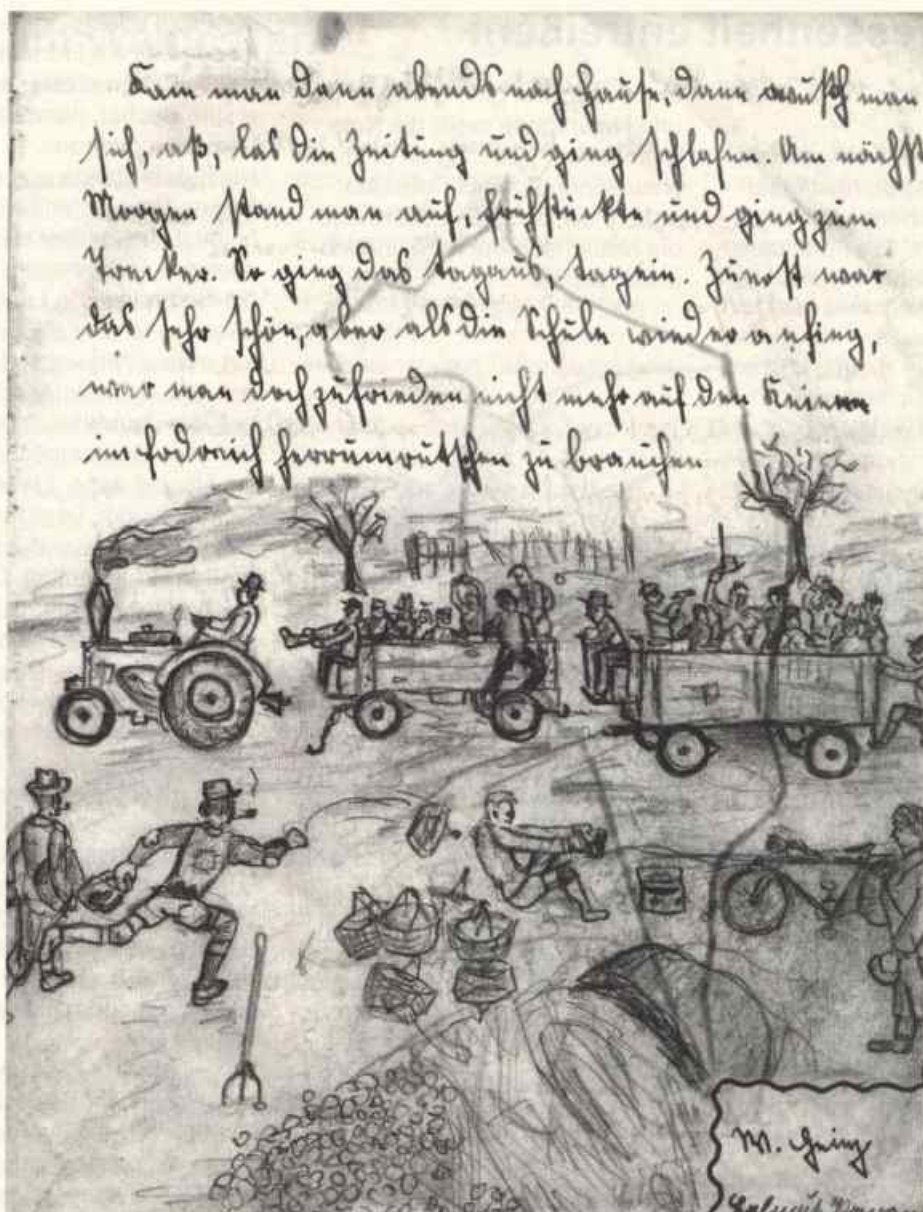 Kam man dann abends nach Hause, dann wusch man
sich, aß, las die Zeitung und ging schlafen. Am nächst
Morgen stand man auf, frühstückte und ging zum
Trecker. So ging das tagaus, tagein. Zuerst war
das sehr schön, aber als die Schule wieder anfing,
war man doch zufrieden nicht mehr auf den Knieen
im Erdreich herrumrutschen zu brauchen
W. Heinz
Helmut